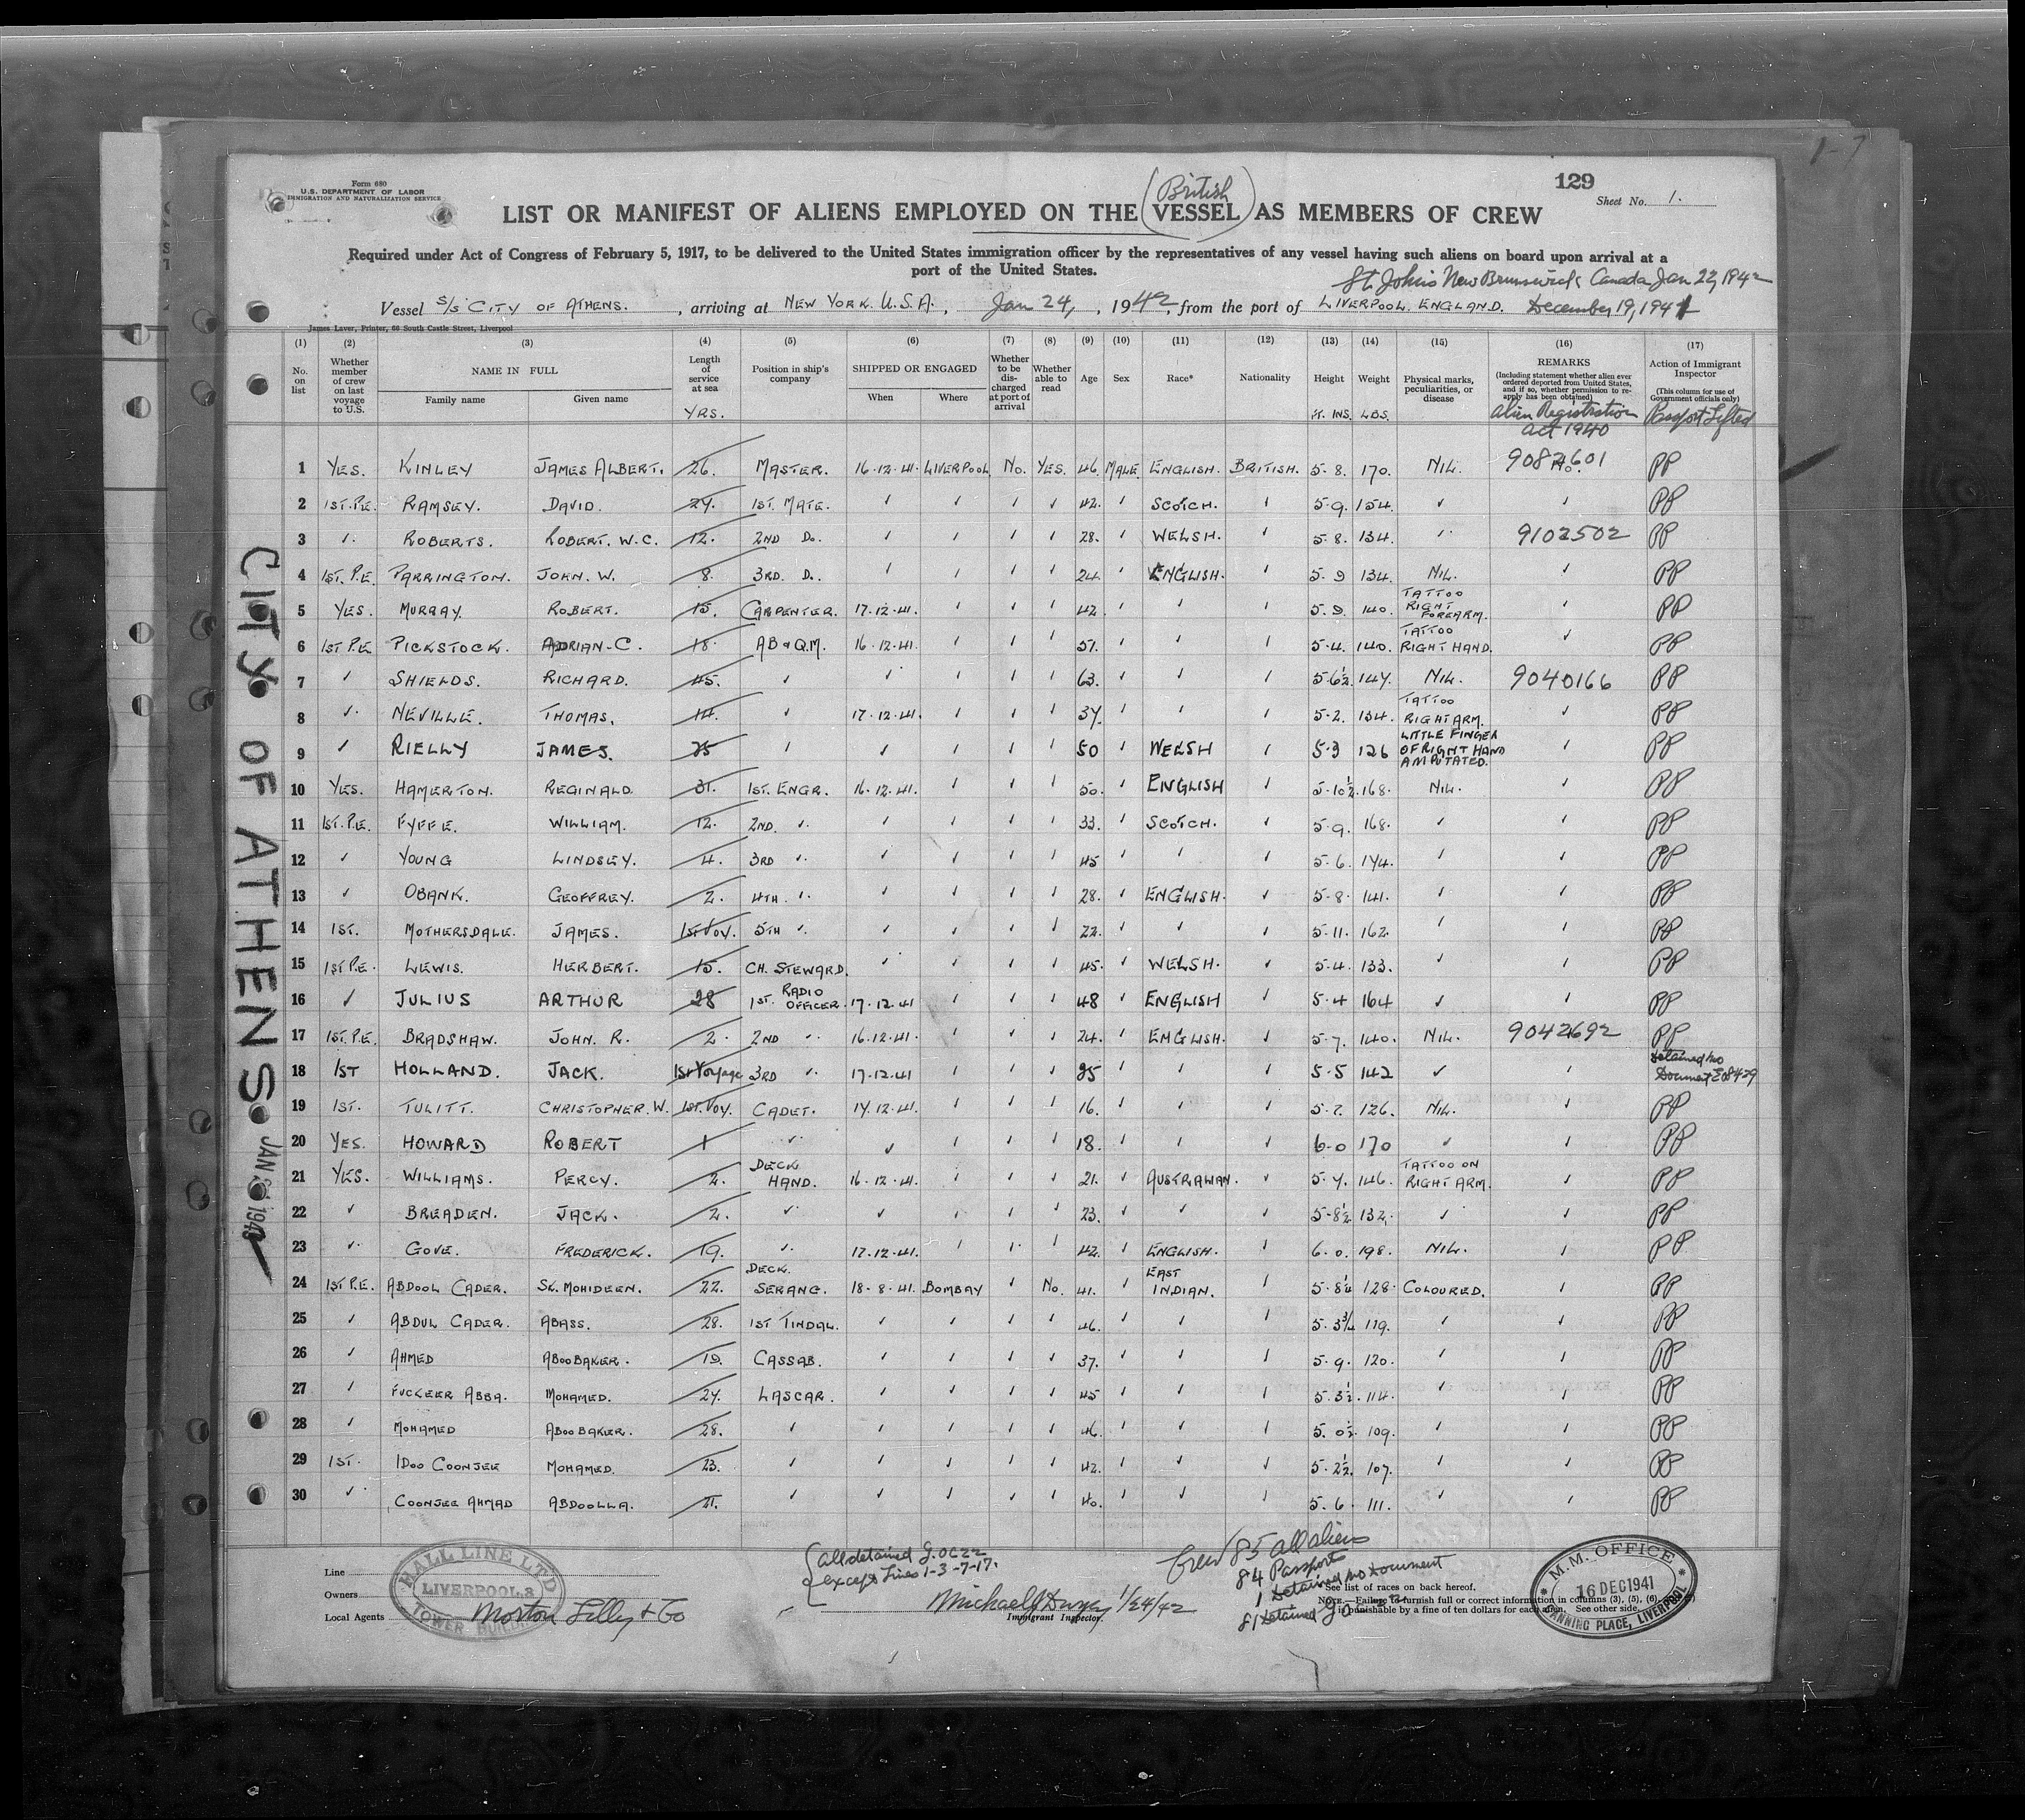 1-7
Form 680
U.S. DEPARTMENT OF LABOR
IMMIGRATION AND NATURALIZATION SERVICE
129
Sheet No. 1.
(British)
LIST OR MANIFEST OF ALIENS EMPLOYED ON THE VESSEL AS MEMBERS OF CREW
Required under Act of Congress of February 5, 1917, to be delivered to the United States immigration officer by the representatives of any vessel having such aliens on board upon arrival at a
port of the United States.
St. Johns New Brunswick Canada Jan 22, 1942
Vessel S/S CITY OF ATHENS. , arriving at NEW YORK. U.S.A. , Jan 24, , 1942, from the port of LIVERPOOL. ENGLAND. December 19, 1941
James Laver, Printer, 66 South Castle Street, Liverpool
(1) (2) (3) (4) (5) (6) (7) (8) (9) (10) (11) (12) (13) (14) (15) (16) (17)
No. on list | Whether member of crew on last voyage to U.S. | NAME IN FULL Family name Given name | Length of service at sea YRS. | Position in ship's company | SHIPPED OR ENGAGED When Where | Whether to be discharged at port of arrival | Whether able to read | Age | Sex | Race* | Nationality | Height FT. INS. | Weight LBS. | Physical marks, peculiarities, or disease | REMARKS (Including statement whether alien ever ordered deported from United States, and if so, whether permission to reapply has been obtained) Alien Registration Act 1940 | Action of Immigrant Inspector (This column for use of Government officials only) Passport Lifted
1 YES. KINLEY JAMES ALBERT. 26. MASTER. 16.12.41. LIVERPOOL No. YES. 46. MALE ENGLISH. BRITISH. 5-8. 170. NIL. 9082601 No. PP
2 1ST.P.E. RAMSEY. DAVID. 24. 1ST. MATE. ✓ ✓ ✓ ✓ 42. ✓ SCOTCH. ✓ 5-9. 154. ✓ ✓ PP
3 ✓ ROBERTS. ROBERT. W.C. 12. 2ND Do. ✓ ✓ ✓ ✓ 28. ✓ WELSH. ✓ 5-8. 134. ✓ 9102502 PP
4 1ST.P.E. PARRINGTON. JOHN. W. 8. 3RD. Do. ✓ ✓ ✓ ✓ 24. ✓ ENGLISH. ✓ 5-9 134. NIL. ✓ PP
5 YES. MURRAY. ROBERT. 15. CARPENTER. 17.12.41. ✓ ✓ ✓ 42. ✓ ✓ ✓ 5.9. 140. TATTOO RIGHT FOREARM. ✓ PP
6 1ST P.E. PICKSTOCK. ADRIAN-C. 18. AB & Q.M. 16.12.41. ✓ ✓ ✓ 51. ✓ ✓ ✓ 5-4. 140. TATTOO RIGHT HAND. ✓ PP
7 ✓ SHIELDS. RICHARD. 45. ✓ ✓ ✓ ✓ ✓ 63. ✓ ✓ ✓ 5-6½. 147. NIL. 9040166 PP
8 ✓ NEVILLE. THOMAS. 14. ✓ 17.12.41. ✓ ✓ ✓ 37. ✓ ✓ ✓ 5-2. 134. TATTOO RIGHT ARM. ✓ PP
9 ✓ RIELLY JAMES. 25 ✓ ✓ ✓ ✓ ✓ 50 ✓ WELSH ✓ 5-3 126 LITTLE FINGER OF RIGHT HAND AMPUTATED. ✓ PP
10 YES. HAMERTON. REGINALD 31. 1ST. ENGR. 16.12.41. ✓ ✓ ✓ 50. ✓ ENGLISH ✓ 5-10½. 168. NIL. ✓ PP
11 1ST.P.E. FYFFE. WILLIAM. 12. 2ND. ✓ ✓ ✓ ✓ ✓ 33. ✓ SCOTCH. ✓ 5-9. 168. ✓ ✓ PP
12 ✓ YOUNG LINDSEY. 4. 3RD ✓ ✓ ✓ ✓ ✓ 45 ✓ ✓ ✓ 5-6. 174. ✓ ✓ PP
13 ✓ OBANK. GEOFFREY. 2. 4TH. ✓ ✓ ✓ ✓ ✓ 28. ✓ ENGLISH. ✓ 5-8. 141. ✓ ✓ PP
14 1ST. MOTHERSDALE. JAMES. 1ST VOY. 5TH ✓ ✓ ✓ ✓ ✓ 22. ✓ ✓ ✓ 5-11. 162. ✓ ✓ PP
15 1ST P.E. LEWIS. HERBERT. 15. CH. STEWARD. ✓ ✓ ✓ ✓ 45. ✓ WELSH. ✓ 5-4. 133. ✓ ✓ PP
16 ✓ JULIUS ARTHUR 28 1ST. RADIO OFFICER. 17.12.41 ✓ ✓ ✓ 48 ✓ ENGLISH ✓ 5-4 164 ✓ ✓ PP
17 1ST.P.E. BRADSHAW. JOHN. R. 2. 2ND ✓ 16.12.41. ✓ ✓ ✓ 24. ✓ ENGLISH. ✓ 5-7. 140. NIL. 9042692 PP
18 1ST HOLLAND. JACK. 1st Voyage 3RD ✓ 17.12.41 ✓ ✓ ✓ 25 ✓ ✓ ✓ 5-5 142 ✓ ✓ Detained no Document
19 1ST. TULITT. CHRISTOPHER. W. 1ST. VOY. CADET. 17.12.41. ✓ ✓ ✓ 16. ✓ ✓ ✓ 5-7. 126. NIL. ✓ PP
20 YES. HOWARD ROBERT 1 ✓ ✓ ✓ ✓ ✓ 18. ✓ ✓ ✓ 6-0 170 ✓ ✓ PP
21 YES. WILLIAMS. PERCY. 2. DECK HAND. 16.12.41. ✓ ✓ ✓ 21. ✓ AUSTRALIAN. ✓ 5-7. 146. TATTOO ON RIGHT ARM. ✓ PP
22 ✓ BREADEN. JACK. 2. ✓ ✓ ✓ ✓ ✓ 23. ✓ ✓ ✓ 5-8½ 132. ✓ ✓ PP
23 ✓ GOVE. FREDERICK. 19. ✓ 17.12.41. ✓ ✓ ✓ 42. ✓ ENGLISH. ✓ 6.0. 198. NIL. ✓ PP
24 1ST P.E. ABDOOL CADER. SK. MOHIDEEN. 22. DECK SERANG. 18-8-41. BOMBAY ✓ No. 41. ✓ EAST INDIAN. ✓ 5-8¼ 128 COLOURED. ✓ PP
25 ✓ ABDUL CADER. ABASS. 28. 1ST TINDAL. ✓ ✓ ✓ ✓ 46. ✓ ✓ ✓ 5.3¾ 119. ✓ ✓ PP
26 ✓ AHMED ABOOBAKER. 19. CASSAB. ✓ ✓ ✓ ✓ 37. ✓ ✓ ✓ 5-9. 120. ✓ ✓ PP
27 ✓ FUCKEER ABBA. MOHAMED. 24. LASCAR. ✓ ✓ ✓ ✓ 45 ✓ ✓ ✓ 5.3½. 114. ✓ ✓ PP
28 ✓ MOHAMED ABOOBAKER. 28. ✓ ✓ ✓ ✓ ✓ 46. ✓ ✓ ✓ 5.0½. 109. ✓ ✓ PP
29 1ST. IDOO COONJEE MOHAMED. 23. ✓ ✓ ✓ ✓ ✓ 42. ✓ ✓ ✓ 5-2½. 107. ✓ ✓ PP
30 ✓ COONJEE AHMAD ABDOOLLA. 21. ✓ ✓ ✓ ✓ ✓ 40. ✓ ✓ ✓ 5.6. 111. ✓ ✓ PP
CITY OF ATHENS.
JAN 1942
Line
Owners
Local Agents Morton Lilly & Co
HALL LINE LTD
LIVERPOOL, 3
TOWER BUILDING
all detained
except Lines 1-3-7-17.
1/24/42
Immigrant Inspector.
Crew 85 all aliens
84 Passports
1 Detained no Document
81 Detained
See list of races on back hereof.
NOTE.—Failure to furnish full or correct information in columns (3), (5), (6),
is punishable by a fine of ten dollars for each alien. See other side.
M.M. OFFICE
16 DEC 1941
CANNING PLACE, LIVERPOOL